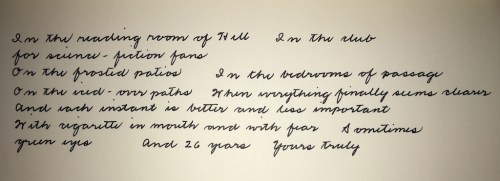 In the reading room of Hell In the club
for science-fiction fans
On the frosted patios In the bedrooms of passage
On the iced-over paths When everything finally seems clearer
And each instant is better and less important
With cigarette in mouth and with fear Sometimes
green eyes And 26 years Yours truly